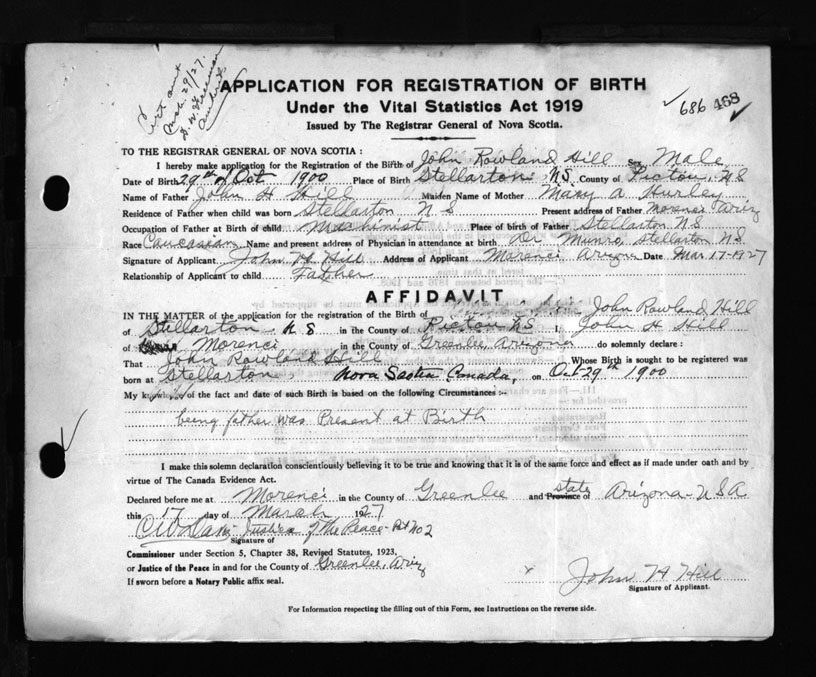 Cert sent
Mch. 29/27.
Amherst
APPLICATION FOR REGISTRATION OF BIRTH
686 468
Under the Vital Statistics Act 1919
Issued by The Registrar General of Nova Scotia.
TO THE REGISTRAR GENERAL OF NOVA SCOTIA:
I hereby make application for the Registration of the Birth of John Rowland Hill Sex Male
Date of Birth 29th of Oct 1900 Place of Birth Stellarton N.S. County of Pictou, N.S
Name of Father John H Hill Maiden Name of Mother Mary A Hurley
Residence of Father when child was born Stellarton N S Present address of Father Morenci Ariz
Occupation of Father at Birth of child Machinist Place of birth of Father Stellarton N S
Race Caucasian Name and present address of Physician in attendance at birth Dr Munro, Stellarton N S
Signature of Applicant John H Hill Address of Applicant Morenci Arizona Date Mar 17-1927
Relationship of Applicant to child Father
AFFIDAVIT
IN THE MATTER of the application for the registration of the Birth of John Rowland Hill
of Stellarton N S in the County of Pictou N S I, John H Hill
of Morenci in the County of Greenlee, Arizona do solemnly declare:
That John Rowland Hill Whose Birth is sought to be registered was
born at Stellarton Nova Sactia Canada, on Oct-29th 1900
My knowledge of the fact and date of such Birth is based on the following Circumstances:-
being father was Present at Birth
I make this solemn declaration conscientiously believing it to be true and knowing that it is of the same force and effect as if made under oath and by
virtue of The Canada Evidence Act.
Declared before me at Morenci in the County of Greenlee and state Province of Arizona-USA
this 17 day of March 1927
Justice of The Peace- Pct No 2
Signature of
Commissioner under Section 5, Chapter 38, Revised Statutes, 1923,
or Justice of the Peace in and for the County of Greenlee, Ariz
If sworn before a Notary Public affix seal.
x John H Hill
Signature of Applicant.
For Information respecting the filling out of this Form, see Instructions on the reverse side.